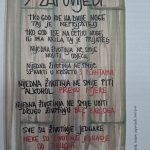 7 ZAPOVIJEDI
TKO GOD IDE NA DVIJE NOGE
TAJ JE NEPRIJATELJ
TKO GOD IDE NA ČETIRI NOGE,
ILI IMA KRILA TAJ JE PRIJATELJ
NIJEDNA ŽIVOTINJA NE SMIJE
NOSITI ODJEĆU
NIJEDNA ŽIVOTINJA NE SMIJE
SPAVATI U KREVETU S PLAHTAMA
NIJEDNA ŽIVOTINJA NE SMIJE PITI
ALKOHOL PREKO MJERE
NIJEDNA ŽIVOTINJA NE SMIJE UBITI
DRUGU ŽIVOTINJU BEZ RAZLOGA
SVE SU ŽIVOTINJE JEDNAKE